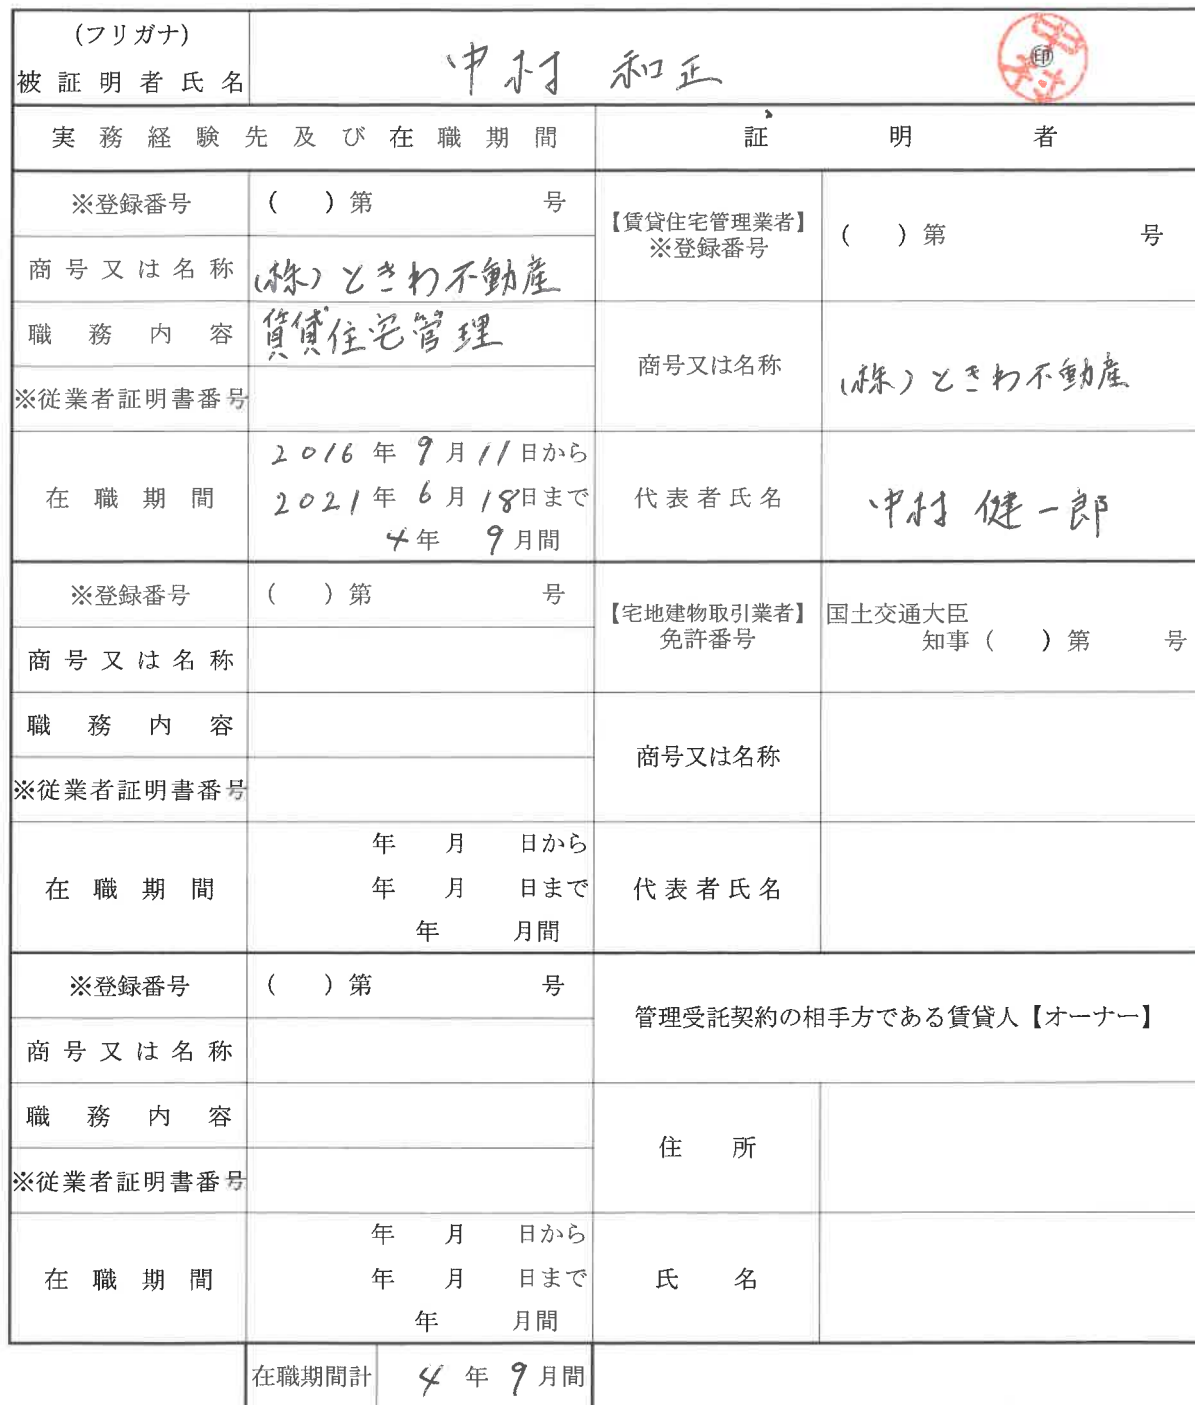 (フリガナ)
被証明者氏名 中村 和正 印 中村
実務経験先及び在職期間 証明者
※登録番号 ( ) 第 号 【賃貸住宅管理業者】 ※登録番号 ( ) 第 号
商号又は名称 (株)ときわ不動産
職務内容 賃貸住宅管理 商号又は名称 (株)ときわ不動産
※従業者証明書番号
在職期間 2016年 9月11日から
2021年 6月18日まで
4年 9月間
代表者氏名 中村 健一郎
※登録番号 ( ) 第 号 【宅地建物取引業者】 免許番号 国土交通大臣
知事 ( ) 第 号
商号又は名称
職務内容 商号又は名称
※従業者証明書番号
在職期間 年 月 日から
年 月 日まで
年 月間
代表者氏名
※登録番号 ( ) 第 号 管理受託契約の相手方である賃貸人【オーナー】
商号又は名称
職務内容 住所
※従業者証明書番号
在職期間 年 月 日から
年 月 日まで
年 月間
氏名
在職期間計 4年 9月間